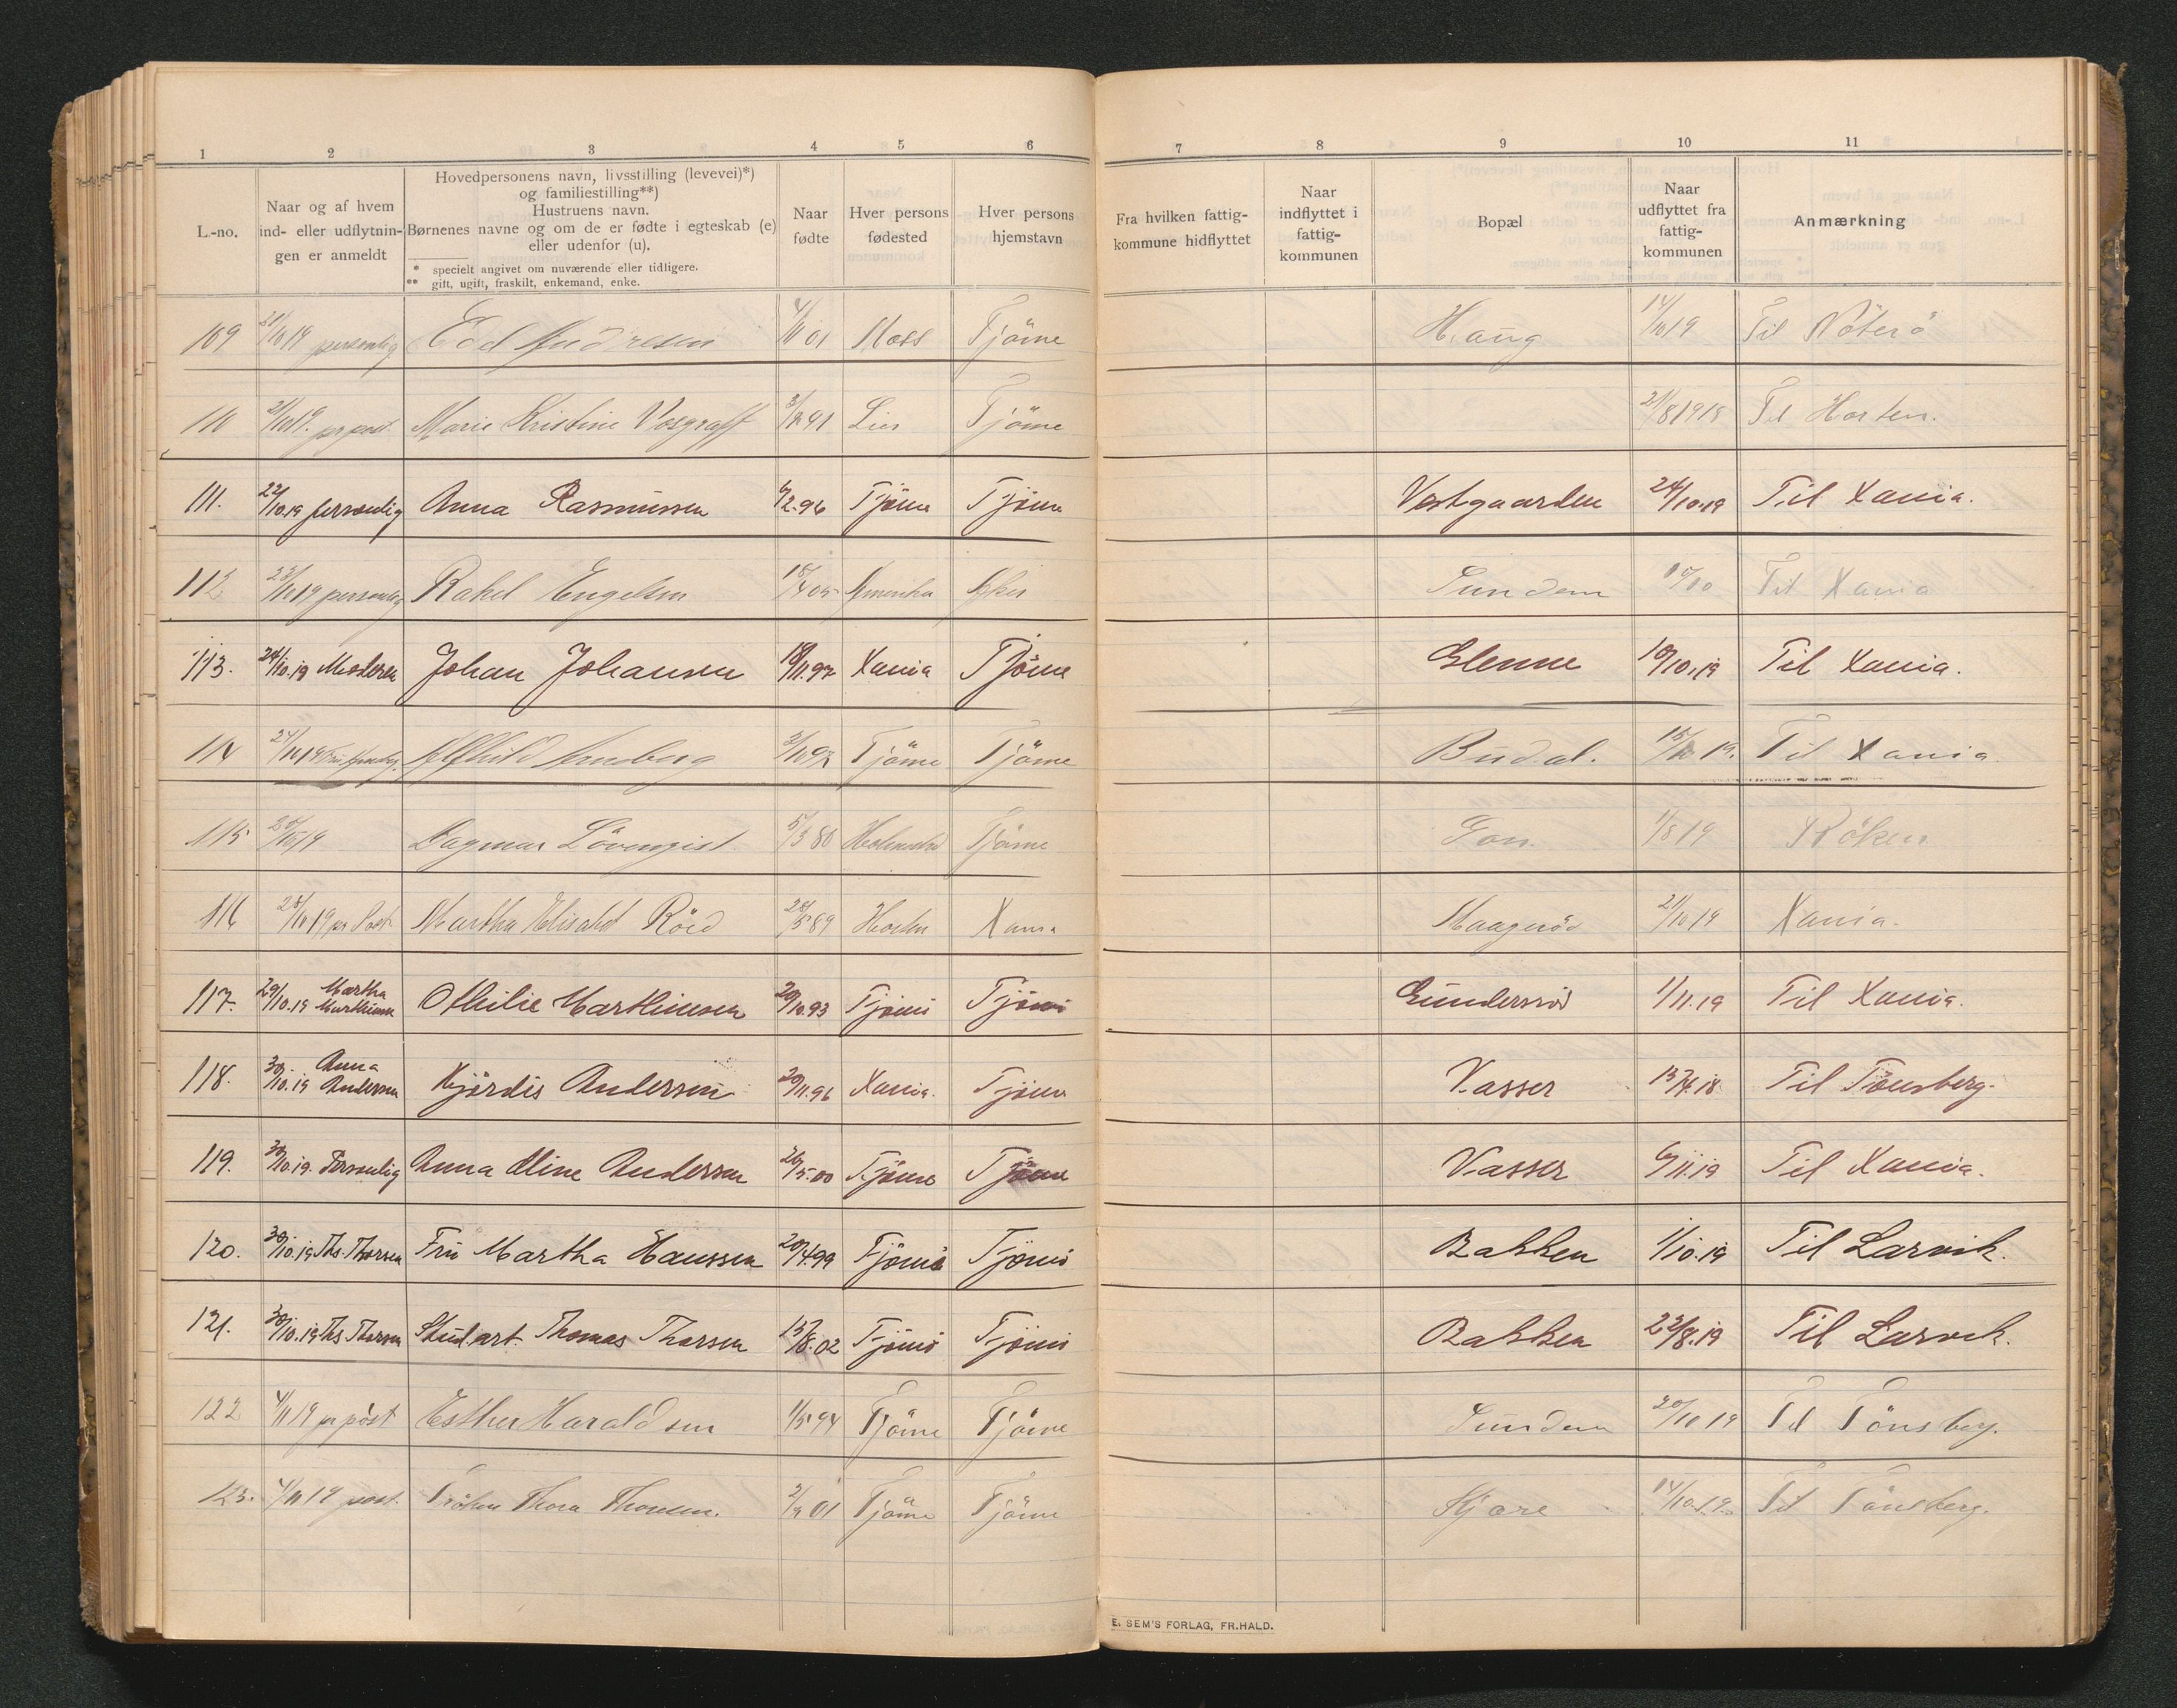 1 2 3 4 5 6 7 8 9 10 11
L.-no.
Naar og af hvem
ind- eller udflytnin-
gen er anmeldt
Hovedpersonens navn, livsstilling (levevei)*)
og familiestilling**)
Hustruens navn.
Børnenes navne og om de er fødte i egteskab (e)
eller udenfor (u).
* specielt angivet om nuværende eller tidligere.
** gift, ugift, fraskilt, enkemand, enke.
Naar
fødte
Hver persons
fødested
Hver persons
hjemstavn
Fra hvilken fattig-
kommune hidflyttet
Naar
indflyttet i
fattig-
kommunen
Bopæl
Naar
udflyttet fra
fattig-
kommunen
Anmærkning
109 21/10 19 personlig Andresen 01 Moss Tjöme Haug 14/10 19 Til Nöterö
110 21/10 19. pr post. Marie Kristine Vosgraff 91 Lier Tjöme 21/8 1918 Til Horten.
111. 22/10.19 personlig Anna Rasmussen 96 Tjöme Tjöme Vestgaarden 24/10.19 Til Xania.
112 23/10 19 personlig Rakel Engelsen 18/4 05 Amerika Sunden Til Xania
113. 24/10.19 Moderen Johan Johansen Xania Tjöme Glenne 10/10.19 Til Xania.
114 24/10 19 Alfhild Arneberg Tjöme Tjöme Budal. 19. Til Xania.
115 Dagmar Lövenqist. 5/3 80 Tjöme 1/8 19 Röken
116 28/10 19 pr Post Martha Elisabet Röed 89 Horten Xania Maagerö 21/10 19 Xania.
117. 29/10.19 Martha Marthinsen Othilie Marthinsen 20/10.93 Tjöme Tjöme Gunderröd 1/11.19 Til Xania.
118. 30/10.19 Anna Andersen Hjördis Andersen 20/11.96 Xania. Tjöme Vasser 15/4.18 Til Tönsberg.
119. 30/10.19. Personlig Anna Aline Andersen 26/5.00 Tjöme Tjöme Vasser 6/11.19 Til Xania.
120. 30/10.19 Ths. Thorsen Fru Martha Hanssen 20/4.99 Tjöme Tjöme Bakken 1/10.19 Til Larvik.
121. 30/10.19 Ths. Thorsen Stud. art. Thomas Thorsen 15/8.02 Tjöme Tjöme Bakken 22/8.19 Til Larvik.
122 4/11 19 pr post Esther Haraldsen 1/5 94 Tjöme Tjöme Sunden 20/10 19 Til Tönsberg.
123. 4/11 19 post. Fröken Thora Thorsen. 01 Tjöme Tjöme 14/10 19 Til Tönsberg.
E. SEM'S FORLAG, FR.HALD.